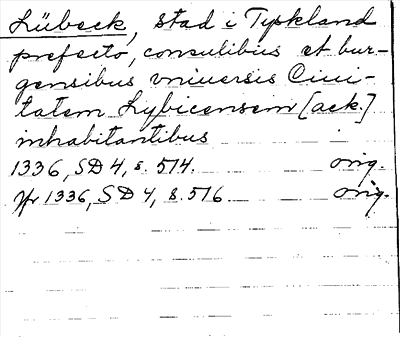 Lübeck, stad i Tyskland
prefecto, consulibus et bur-
gensibus vniuersis Ciui-
tatem Lybicensem [ack.]
inhabitantibus
1336, SD 4, s. 514. orig.
Yr 1336, SD 4, s. 516 orig.